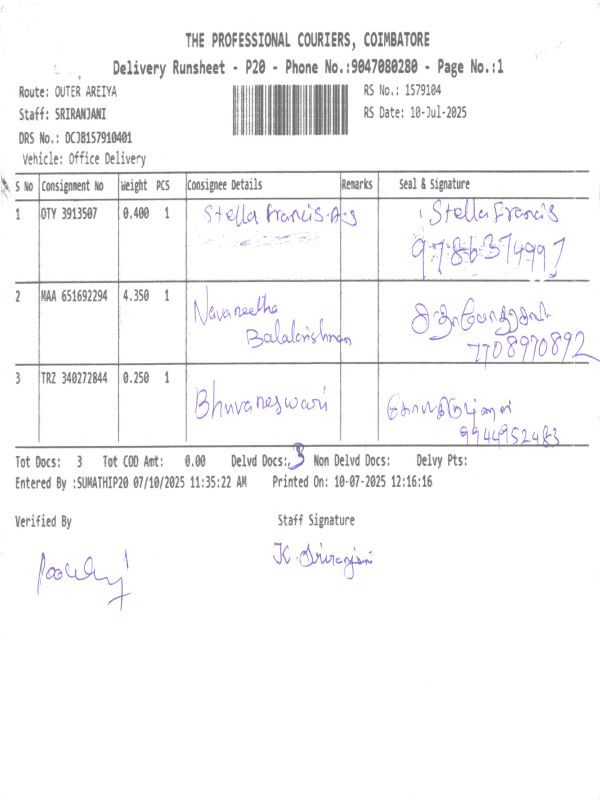 THE PROFESSIONAL COURIERS, COIMBATORE
Delivery Runsheet - P20 - Phone No.:9047080280 - Page No.:1
Route: OUTER AREIYA RS No.: 1579104
Staff: SRIRANJANI RS Date: 10-Jul-2025
DRS No.: DCJ8157910401
Vehicle: Office Delivery
S No Consignment No Weight PCS Consignee Details Remarks Seal & Signature
1 OTY 3913507 0.400 1 Stella Francis.A.S Stella Francis
9786374997
2 MAA 651692294 4.350 1 Navaneetha
Balakrishnan 7708970892
3 TRZ 340272844 0.250 1 Bhuvaneswari
9944952483
Tot Docs: 3 Tot COD Amt: 0.00 Delvd Docs: 3 Non Delvd Docs: Delvy Pts:
Entered By :SUMATHIP20 07/10/2025 11:35:22 AM Printed On: 10-07-2025 12:16:16
Verified By Staff Signature
K. Sriranjani